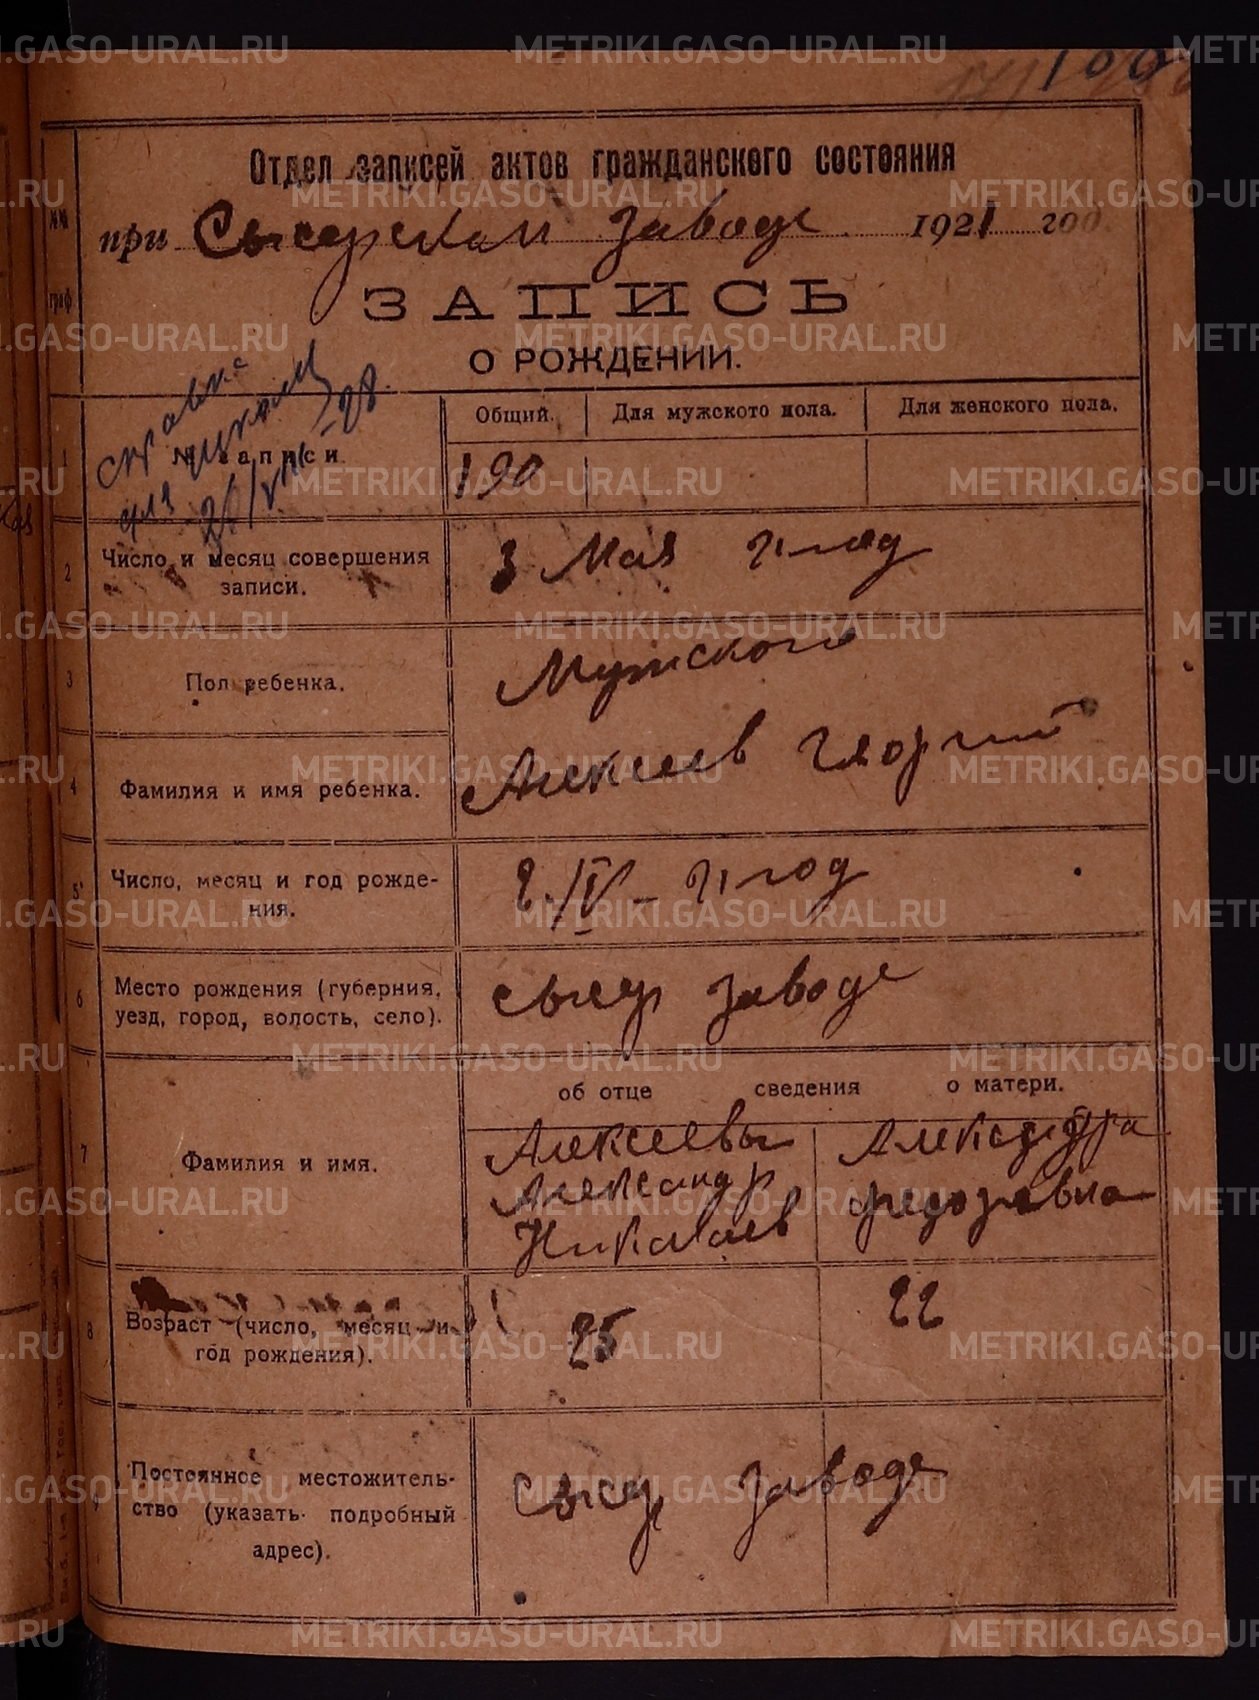 100
Отдел записей актов гражданского состояния
при Сысертском Заводе 1921 год
№№ граф
ЗАПИСЬ
О РОЖДЕНИИ.
справка для школы 21/VIII-28
Общий. Для мужского пола. Для женского пола.
1 № записи 190
2 Число и месяц совершения записи. 3 Мая 21 год
3 Пол ребенка. Мужского
4 Фамилия и имя ребенка. Алексеев Георгий
5 Число, месяц и год рожде-
ния. 2/IV - 21 год
6 Место рождения (губерния,
уезд, город, волость, село). Сысер Заводе
об отце сведения о матери.
7 Фамилия и имя.
Алексеевы Александра
Александр Федоровна
Николаев
8 Возраст (число, месяц и
год рождения). 25 22
9 Постоянное местожитель-
ство (указать подробный
адрес). Сысер Заводе
METRIKI.GASO-URAL.RU